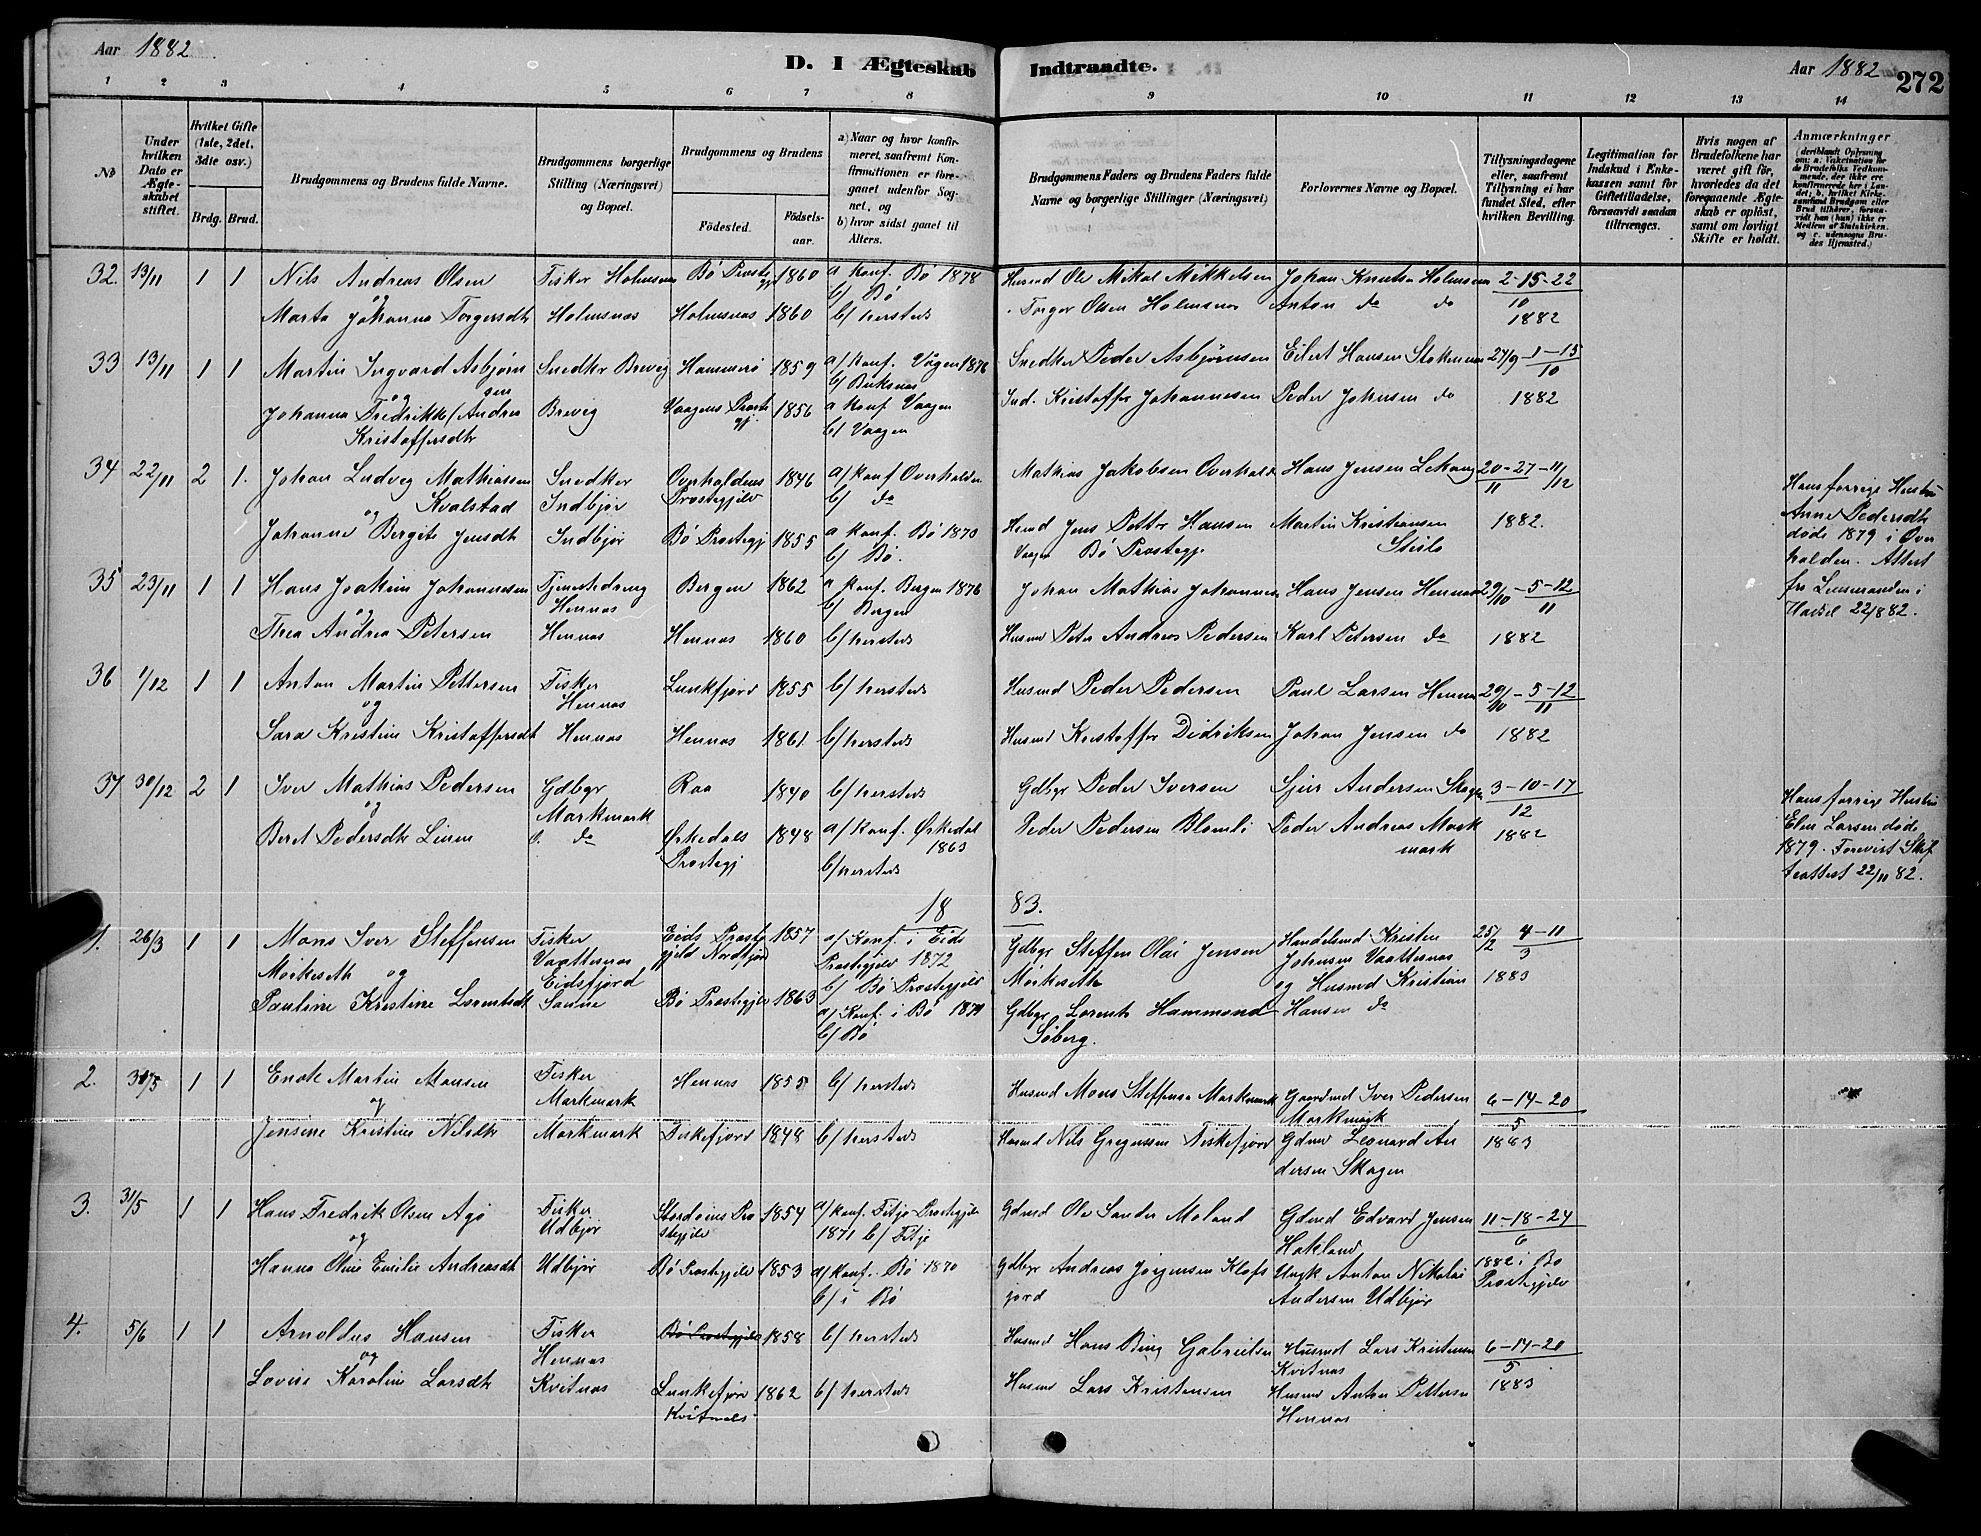 Aar 1882
D. I Ægteskab Indtraadte.
Aar 1882
272
1 2 3 4 5 6 7 8 9 10 11 12 13 14
No
Under hvilken Dato er Ægteskabet stiftet.
Hvilket Gifte (1ste, 2det, 3die osv.)
Brdg. Brud.
Brudgommens og Brudens fulde Navne.
Brudgommens borgerlige Stilling (Næringsvei) og Bopæl.
Brudgommens og Brudens
Födested. Födselsaar.
a) Naar og hvor konfirmeret, saafremt Konfirmationen er foregaaet udenfor Sognet, og
b) hvor sidst gaaet til Alters.
Brudgommens Faders og Brudens Faders fulde Navne og borgerlige Stillinger (Næringsvei)
Forlovernes Navne og Bopæl.
Tillysningsdagene eller, saafremt Tillysning ei har fundet Sted, efter hvilken Bevilling.
Legitimation for Indskud i Enkekassen samt for Giftetilladelse, forsaavidt saadan tiltrænges.
Hvis nogen af Brudefolkene har været gift för, hvorledes da det foregaaende Ægteskab er oplöst, samt om lovligt Skifte er holdt.
Anmærkninger
32. 13/11 1 1 Nils Andreas Olsen Fisker Holmsnes Bö Prostegj 1860 a konf. Bö 1878 b/ Bö Husmd Ole Mikal Mikkelsen Johan Knutsen Holmsnes 2-15-22/10
og
Marta Johanna Torgersdtr Holmsnæs Holmsnæs 1860 b/ hersteds Torger Olsen Holmsnæs Anton do do 1882
33 13/11 1 1 Martin Ingvard Asbjørnsen Snedker Brevig Hammerö 1859 a/ konf. Vågen 1876 b/ Buksnæs Snedker Peder Asbjörnsen Eilert Hansen Stokmnæs 27/9-1-15/10
og
Johanna Fredrikke Andrea Brevig Vaagens Prostegj. 1856 a konf Vaagen b/ Vaagen Ind. Kristoffer Johannesen Peder Johnsen do 1882
Kristoffersdtr
34 22/11 2 1. Johan Ludvig Mathiassen Snedker Overhaldens 1846 a/ konf Overhalden Mathias Jakobsen Overhald Hans Jensen Lekang 20-27-11/12
Kvalstad Indbjör Prostegjeld b/ do 11
og
Johanne Bergite Jensdtr Indbjör Bö Prostegj 1855 a konf. Bö 1870 b/ Bö. Husmd Jens Petter Hansen Martin Kristiansen 1882.
Vaagen Bö Prostegj. Steilo
Hans forrige Hustru Anne Pedersdtr döde 1879 i Overhalden. Attest fra Lensmanden i Hassel 22/8 82.
35 23/11 1 1 Hans Joakim Johannesen Tjenestedreng Bergen 1862 a konf. Bergen 1876 b/ Bergen Johan Mathias Johannes Hans Jensen Hennæs 29/10-5-12/11
og Hennæs
Thea Andrea Petersen Hennæs Hennæs 1860 b/ hersteds Husmd Peter Andreas Pedersen Karl Petersen do 1882
36 1/12 1 1 Anton Martin Pettersen Fisker Lunkfjord 1855 b/ hersteds Husmd Peder Pedersen Paul Larsen Hennæs 29/10-5-12/11
og Hennæs
Sara Kristine Kristoffersdt Hennæs Hennæs 1861 b/ hersteds Husmd Kristoffer Didriksen Johan Jensen do 1882
37 30/12 2 1 Iver Mathias Pedersen Gdbgr Raa 1840 b/ hersteds Gdbgr Peder Iversen Sjur Andersen Skagen 3-10-17/12
og Markmark
Beret Pedersdtr Linem do Örkedals Prostegj 1848 a/ Konf. Örkedal 1863 b/ hersteds Peder Pedersen Blomli Peder Andreas Markmark 1882
Hans forrige Hustru Elen Larsen döde 1879. Forevist Skifteattest 22/11 82.
18 83.
1. 26/3 1 1 Mons Iver Steffensen Fisker Eids Prostegjeld Nordfjord 1857 a/ Konf. i Eids Prostegjeld 1872 Gdbgr Steffen Olai Jensen Handelsmd Kristen 25/2 4-11/3
Mörkeseth og Vaattesnæs Eidsfjord b/ Bö Prostegjeld Mörkeseth Johnsen Vaattesnæs
Pauline Kristine Lorentsdtr Sanne Bö Prostegjeld 1863 a/ Konf. i Bö 1879 b/ Bö Gdbgr Lorents Hammond Söberg. og Husmd Kristian Hansen do 1883
2. 30/5 1 1 Enok Martin Monsen Fisker Hennæs 1855 b/ hersteds Husmd Mons Steffensen Markmark Gaardmd Iver Pedersen 6-14-20/5
og Markmark Markmark
Jensine Kristine Nilsdtr Markmark Fiskefjord 1848 b/ hersteds Husmd Nils Gregussen Fiskefjord Gdmd Leonard Andersen Skagen 1883
3. 31/5 1 1 Hans Fredrik Olsen Agö Fisker Stordöens Prostegjeld 1854 a/ konf. Fitje Prostegjeld 1871 b/ Fitje Gdmd Ole Sander Moland Gdmd Edvard Jensen 11-18-24/6
og Udbjör Hakland
Hanna Oline Emilie Andreasdt Udbjör Bö Prostegjeld 1853 a/ konf. Bö 1870 b/ i Bö Gdbgr Andreas Jörgensen Klofsjord Ungk Anton Nikolai Andersen Udbjör 1882 i Bö Prostegjeld
4. 5/6 1 1 Arnoldus Hansen Fisker Bö Prostegjeld 1858 b/ hersteds Husmd Hans Bing Gabrielsen Husmd Lars Kristensen 6-14-20/5
og Hennæs Kvitnæs
Lovise Karoline Larsdtr Kvitnæs Lunkefjord 1862 b/ hersteds Husmd Lars Kristensen Husmd Anton Pettersen 1883
Kvitnæs Hennæs